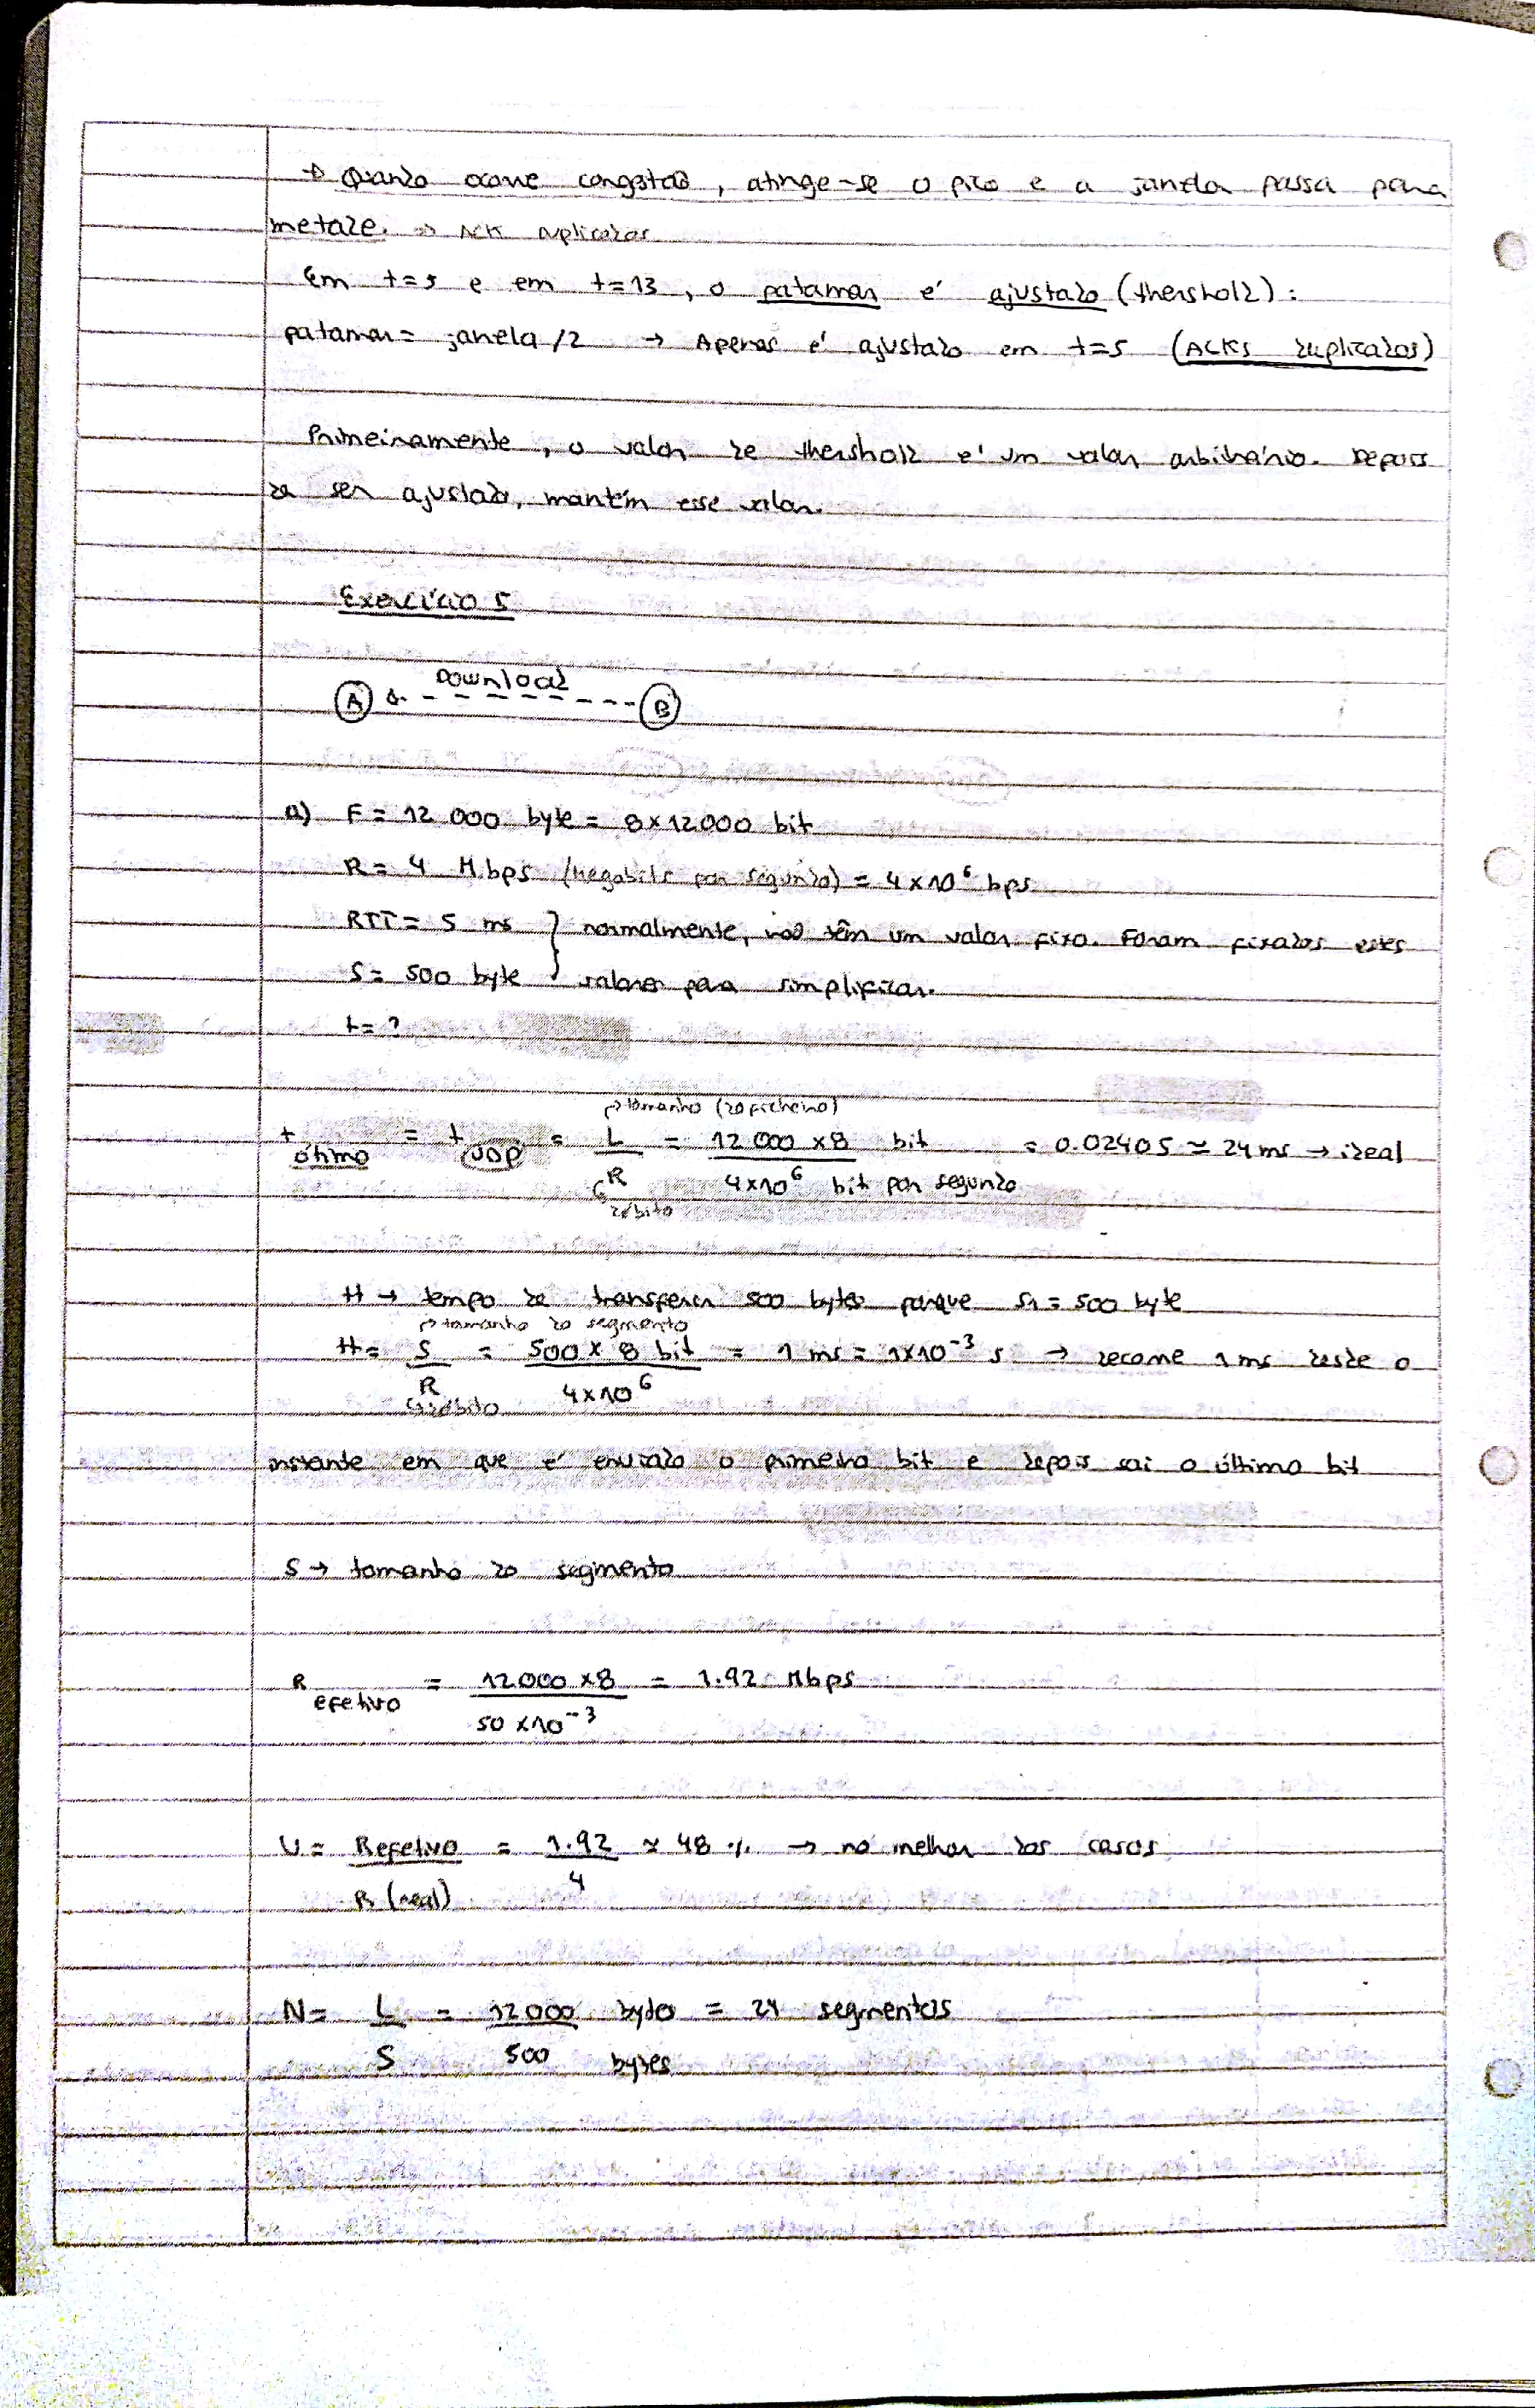 → Quando ocorre congestão, atinge-se o pico e a janela passa para
metade. → ACK duplicados
Em t=5 e em t=13, o patamar é ajustado (thershold):
patamar = janela /2 → Apenas é ajustado em t=5 (ACKs duplicados)
Primeiramente, o valor de thershold é um valor arbitrário. Depois
de ser ajustado, mantém esse valor.
Exercício 5
Download
A ← - - - - - - - - B
a) F = 12 000 byte = 8×12000 bit
R = 4 Mbps (Megabits por segundo) = 4×10⁶ bps
RTT = 5 ms } normalmente, não têm um valor fixo. Foram fixados estes
S = 500 byte } valores para simplificar.
t = ?
↱ tamanho (do ficheiro)
t ótimo = t UDP = L = 12 000 ×8 bit = 0.0240 s ≃ 24 ms → ideal
R 4×10⁶ bit por segundo
↳ débito
tt → tempo de transferir 500 bytes porque S1 = 500 byte
↱ tamanho do segmento
tt = S = 500 × 8 bit = 1 ms = 1×10⁻³ s → decorre 1 ms desde o
R 4×10⁶
↳ débito
instante em que é enviado o primeiro bit e depois sai o último bit
S → tamanho do segmento
R efetivo = 12000 ×8 = 1.92 Mbps
50 ×10⁻³
U = Refetivo = 1.92 ≃ 48 % → no melhor dos casos
R (real) 4
N = L = 12000 bytes = 24 segmentos
S 500 bytes